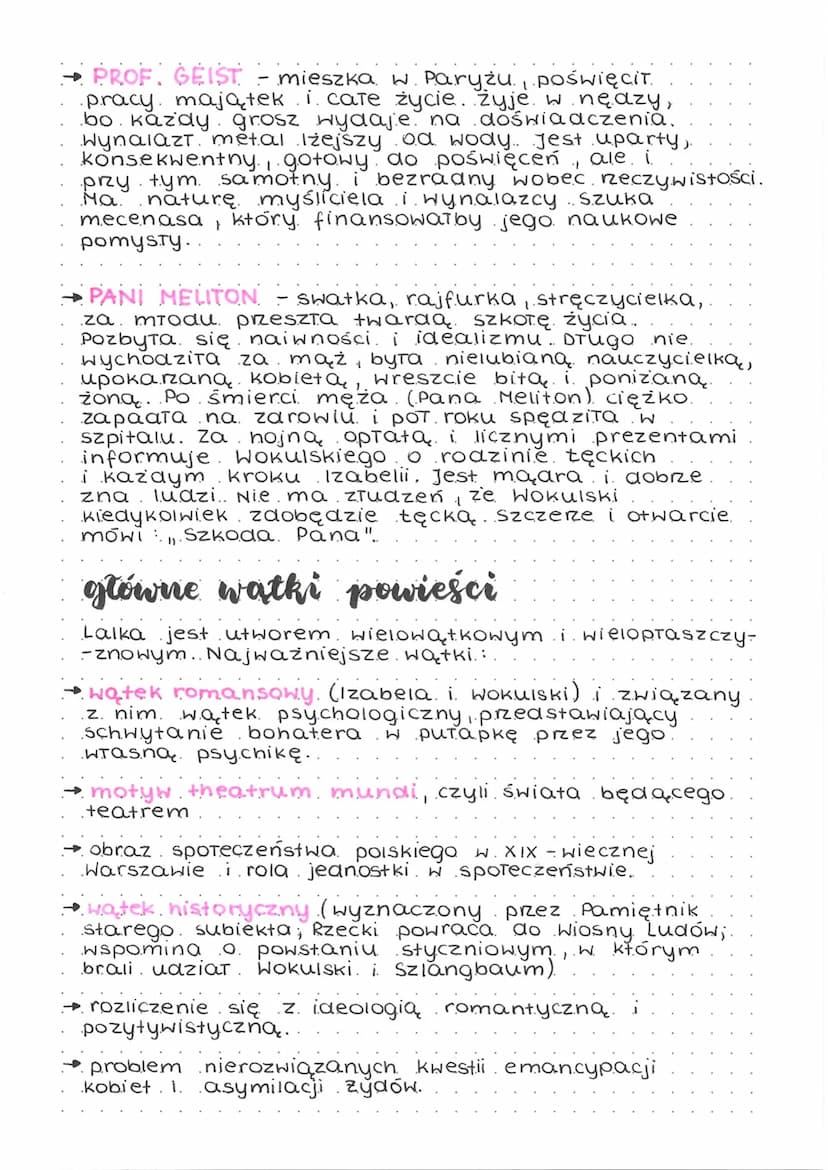 → PROF. GEIST - mieszka w Paryżu, poświęcił
pracy majątek i całe życie. Żyje w nędzy,
bo każdy grosz wydaje na doświadczenia.
Wynalazł metal lżejszy od wody. Jest uparty,
konsekwentny, gotowy do poświęceń, ale i
przy tym samotny i bezradny wobec rzeczywistości.
Ma naturę myśliciela i wynalazcy. Szuka
mecenasa, który finansowałby jego naukowe
pomysły.
→ PANI MELITON - swatka, rajfurka, stręczycielka,
za młodu przeszła twardą szkołę życia.
Pozbyła się naiwności i idealizmu. Długo nie
wychodziła za mąż, była nielubianą nauczycielką,
upokarzaną kobietą, wreszcie bitą i poniżaną
żoną. Po śmierci męża (Pana Meliton) ciężko
zapadła na zdrowiu i pół roku spędziła w
szpitalu. Za hojną opłatą i licznymi prezentami
informuje Wokulskiego o rodzinie Łęckich
i każdym kroku Izabelii. Jest mądra i dobrze
zna ludzi. Nie ma złudzeń, że Wokulski
kiedykolwiek zdobędzie Łęcką. Szczerze i otwarcie
mówi: „Szkoda Pana".
główne wątki powieści
Lalka jest utworem wielowątkowym i wielopłaszczy-
-znowym. Najważniejsze wątki:
→ wątek romansowy (Izabela i Wokulski) i związany
z nim wątek psychologiczny, przedstawiający
schwytanie bohatera w pułapkę przez jego
własną psychikę.
→ motyw theatrum mundi, czyli świata będącego
teatrem
→ obraz społeczeństwa polskiego w XIX-wiecznej
Warszawie i rola jednostki w społeczeństwie.
→ wątek historyczny (wyznaczony przez Pamiętnik
starego subiekta; Rzecki powraca do Wiosny Ludów;
wspomina o powstaniu styczniowym, w którym
brali udział Wokulski i Szlangbaum)
→ rozliczenie się z ideologią romantyczną i
pozytywistyczną.
→ problem nierozwiązanych kwestii emancypacji
kobiet i asymilacji Żydów.